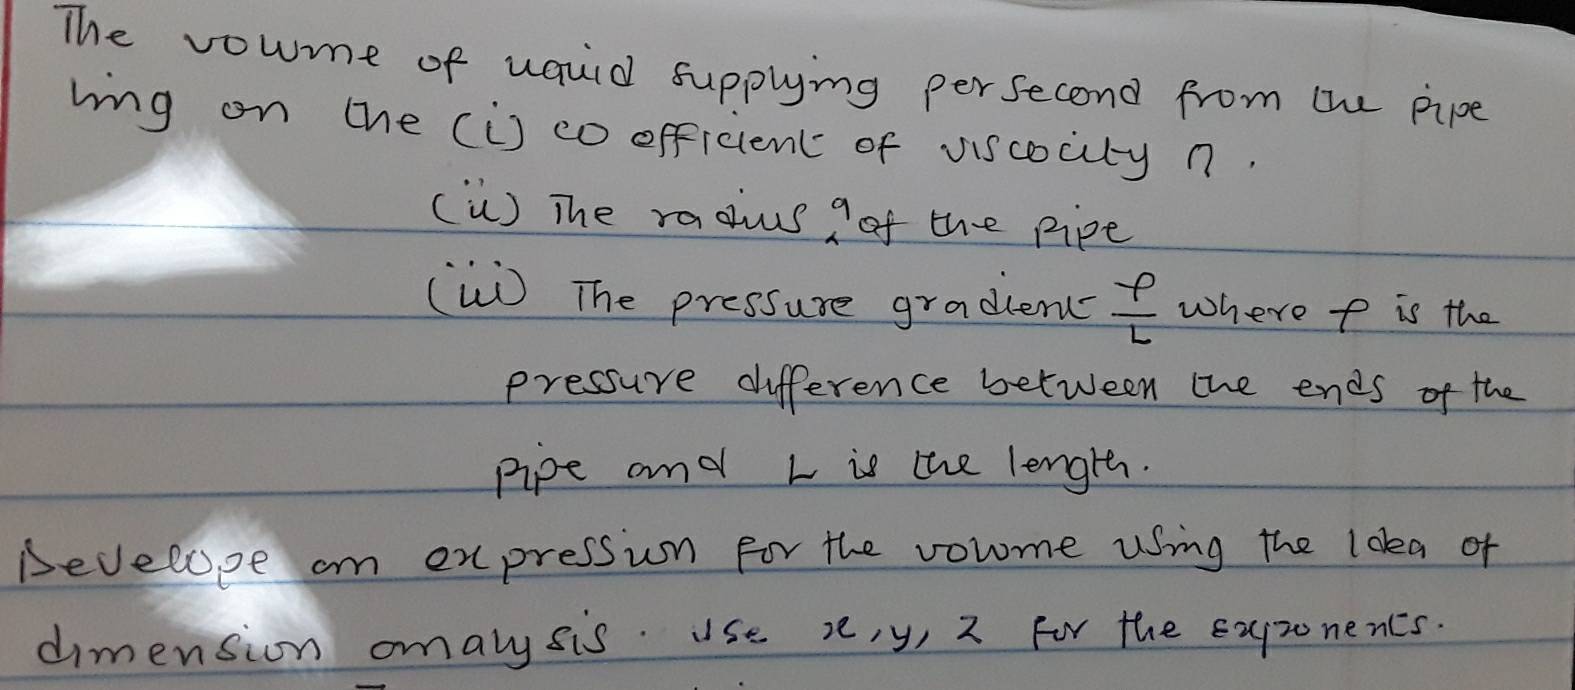 The volume of liquid supplying per second from the pipe
ling on the (i) co efficient of viscocity η.
(ii) The radius a of the pipe
(iii) The pressure gradient P/L where P is the
pressure difference between the ends of the
pipe and L is the length.
Develope an expression for the volume using the Idea of
dimension analysis. Use x, y, z for the exponents.